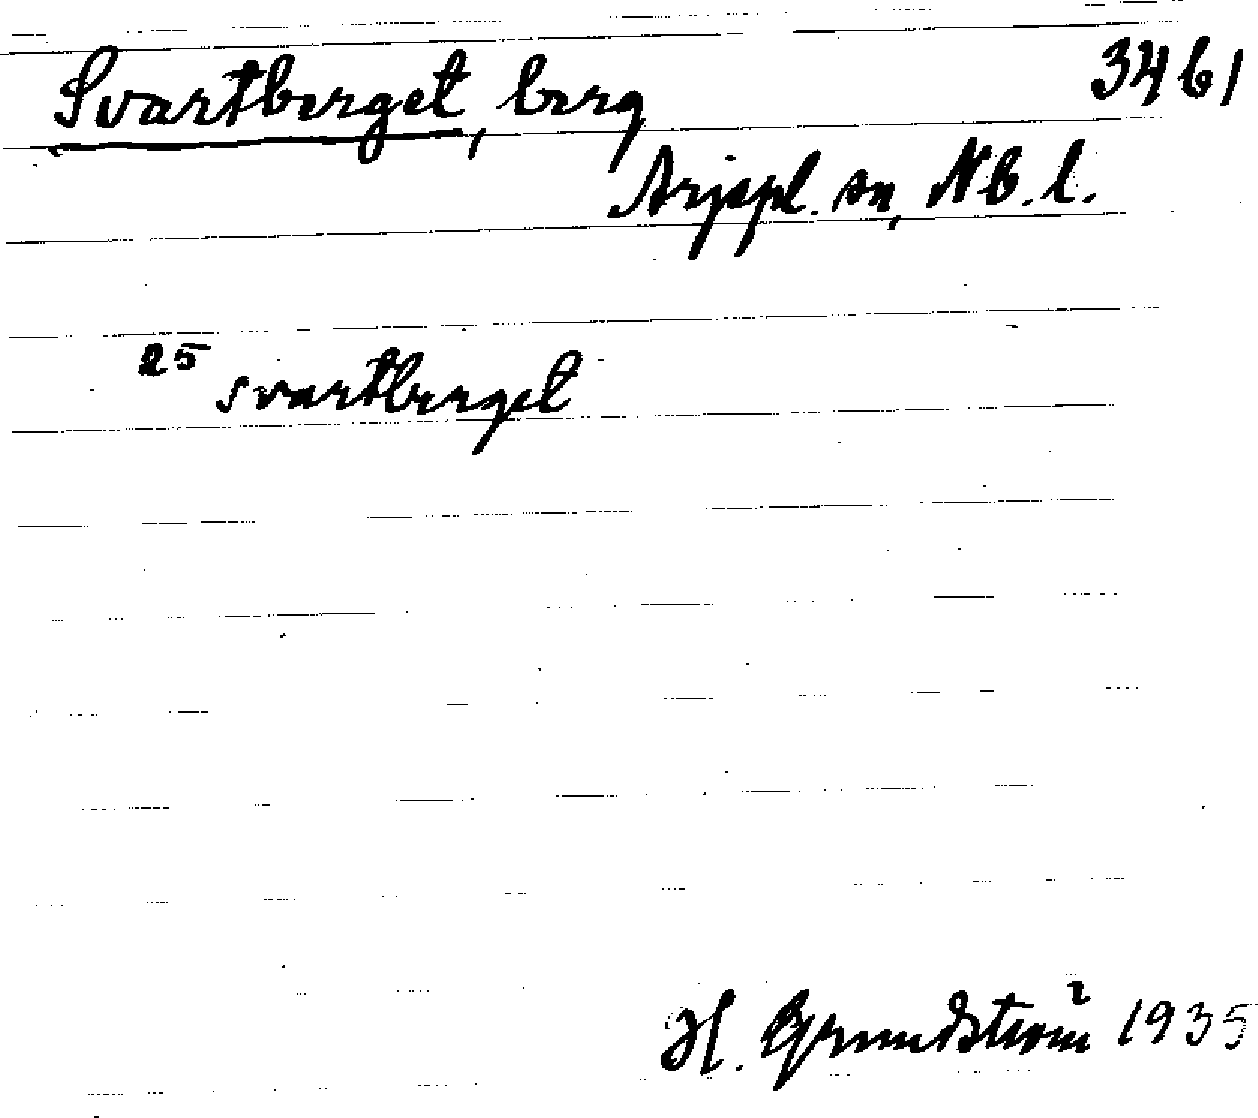 Svartberget, berg 3461
Arjepl. sn, Nb. l.
25 svartberget
H. Grundström 1935